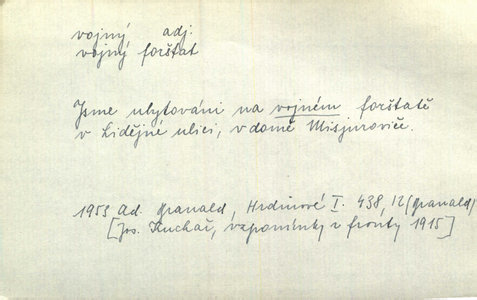 vojný adj.
vojný forštat
Jsme ubytováni na vojném forštatě
v Lidějné ulici, v domě Misjuroviče.
1953 Ad. Granald, Hrdinové I. 438, 12 (Granald)
[Jos. Kuchař, vzpomínky z fronty 1915]